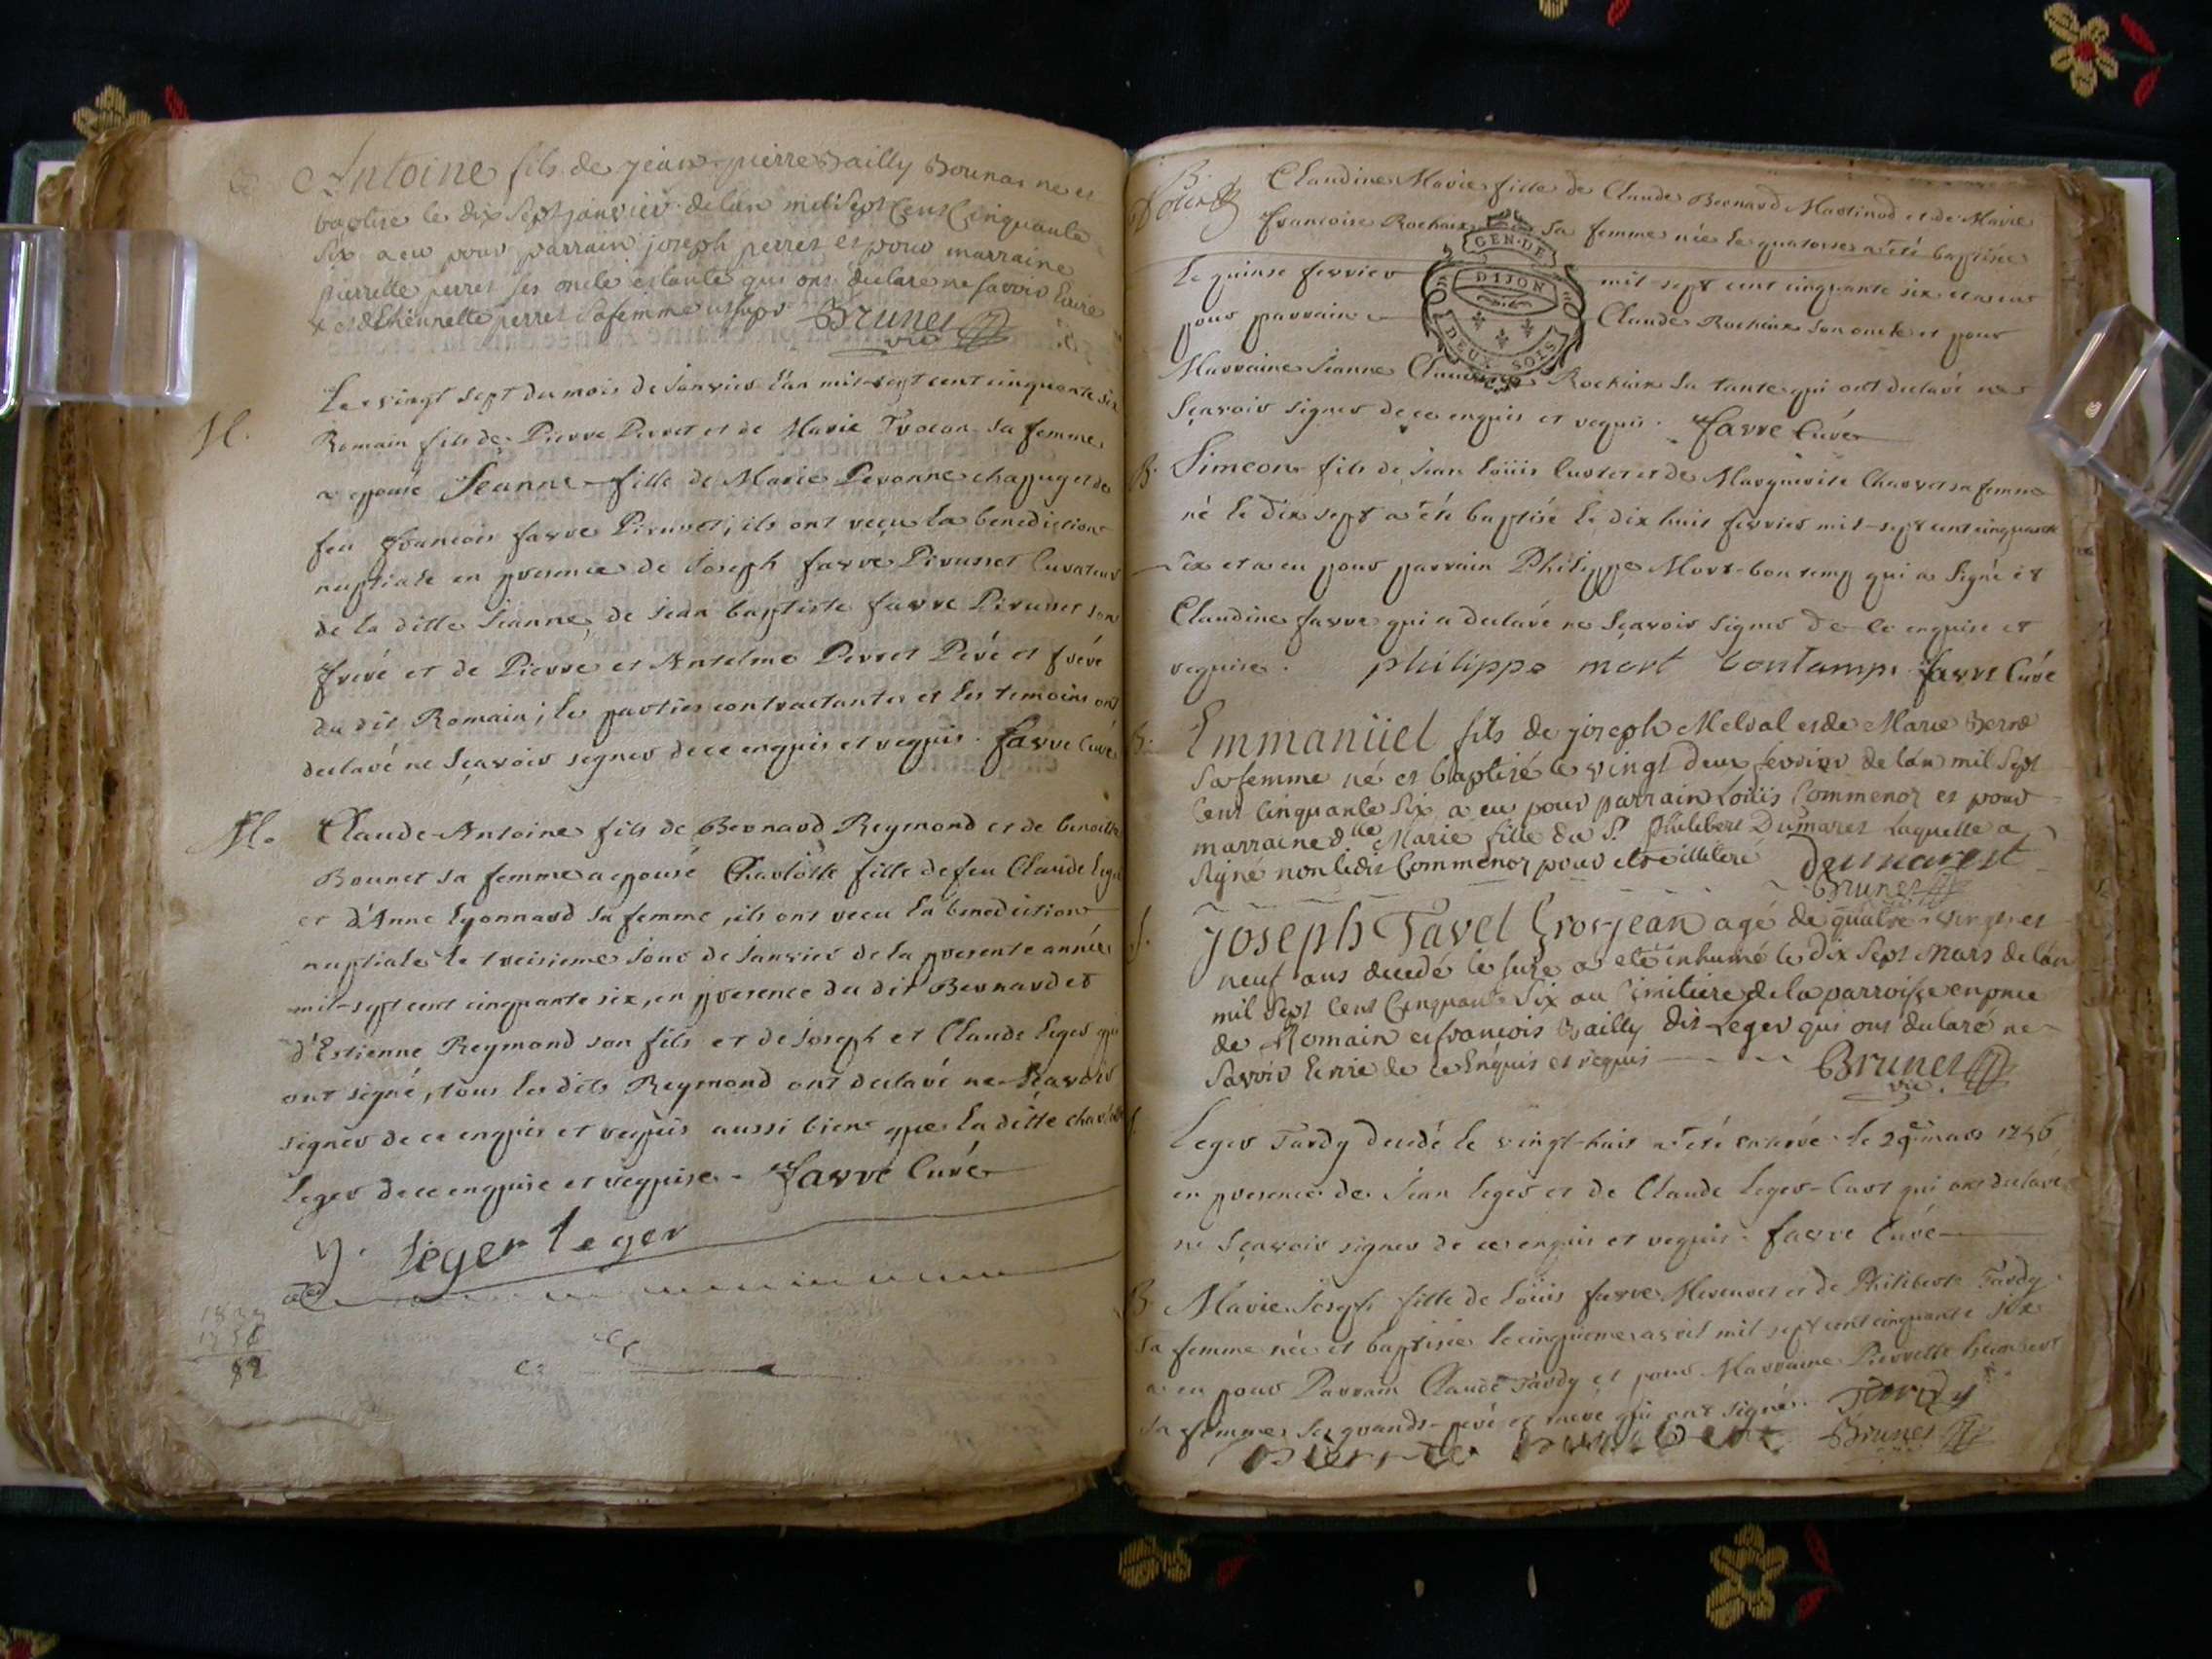 Antoine fils de jean pierre Bailly Bounas ne et
baptise le dix Sept janvier de lan mil Sept Cent Cinquante
Six a eu pour parrain joseph perret et pour marraine
pierrette perret ses oncle et tante qui ont declare ne savoir Ecrire
x et d'Ethiennette perret Sa femme ut supr Brunet
vic
M.
Le vingt sept du mois de Janvier l'an mil-sept cent cinquante six
Romain fils de Pierre Perret et de Marie sa femme
a epousé Jeanne fille de Marie Peronne chapuy et de
feu francois favre Piruset, ils ont reçu la benediction
nuptiale en presence de Joseph favre Pirusset Curateur
de la ditte Jeanne, de jean baptiste favre Pirusset son
frere et de Pierre et Antelme Perret Peré et freré
du dit Romain; les parties contractantes et les temoins ont
declaré ne sçavoir signer de ce enquis et requis. favre Curé
M.
Claude-Antoine fils de Bernard Reymond et de benoitte
Bounet sa femme a epousé Charlotte fille de feu Claude leger
et d'Anne Lyonnard sa femme, ils ont recu la benediction
nuptiale le treisieme Jour de Janvier de la presente année
mil-sept cent cinquante six, en presence du dit Bernard et
d'Estienne Reymond son fils et de Joseph et Claude leger qui
ont signé, tous les dits Reymond ont declaré ne Sçavoir
signer de ce enquis et requis aussi bien que la ditte charlotte
Leger de ce enquise et requise. favre Curé
J. leger leger
1838
1756
82
B.
Claudine Marie fille de Claude Bernard Martinod et de Marie
francoise Rochaix sa femme née le quatorse a été baptisée
GEN. DE
DIJON
DEUX SOLS
le quinse fevrier mil-sept cent cinquante six et a eu
pour parrain Claude Rochaix son oncle et pour
Marraine Jeanne Claudine Rochaix sa tante qui ont declaré ne
Sçavoir signer de ce enquis et requis. favre Curé
B.
Simeon fils de Jean Loüis et de Marguerite Charvet sa femme
né le dix sept a été baptisé le dix huit fevrier mil-sept cent cinquante
Six et a eu pour parrain Philippe Mort-bontemp qui a signé et
Claudine favre qui a declaré ne sçavoir signer de ce enquise et
requise. philippe mort bontamps favre Curé
B.
Emmanüel fils de joseph Meldal et de Marie
Sa femme né et baptisé le vingt deux fevrier de lan mil Sept
Cent Cinquante Six a eu pour parrain Loüis Commenor et pour
marraine dlle Marie fille du Sr. philibert Dumarest laquelle a
signé non ledit Commenor pour etre illiteré Dumarest
Brunet
S.
joseph Tavel Gros-jean agé de quatre vingt et
neuf ans decedé le seize a eté inhumé le dix Sept Mars de lan
mil Sept Cent Cinquante Six au Cimitiere de la parroisse en pnce
de Romain et francois Bailly dit Leger qui ont declaré ne
Savoir Ecrire de ce Enquis et requis Brunet
vic.
S.
Leger Tardy decedé le vingt-huit a été enterré le 29e mars 1756
en presence de Jean leger et de Claude leger-Curt qui ont declaré
ne Sçavoir signer de ce enquis et requis. favre Curé
B.
Marie Joseph fille de Loüis favre et de Philiberte Tardy
sa femme née et baptisée le cinquieme avril mil sept cent cinquante six
a eu pour Parrain Claude Tardy et pour Marraine Pierrette humbert
sa femme ses grands-peré et mere qui ont signé. Tardy
pierrete humbert Brunet